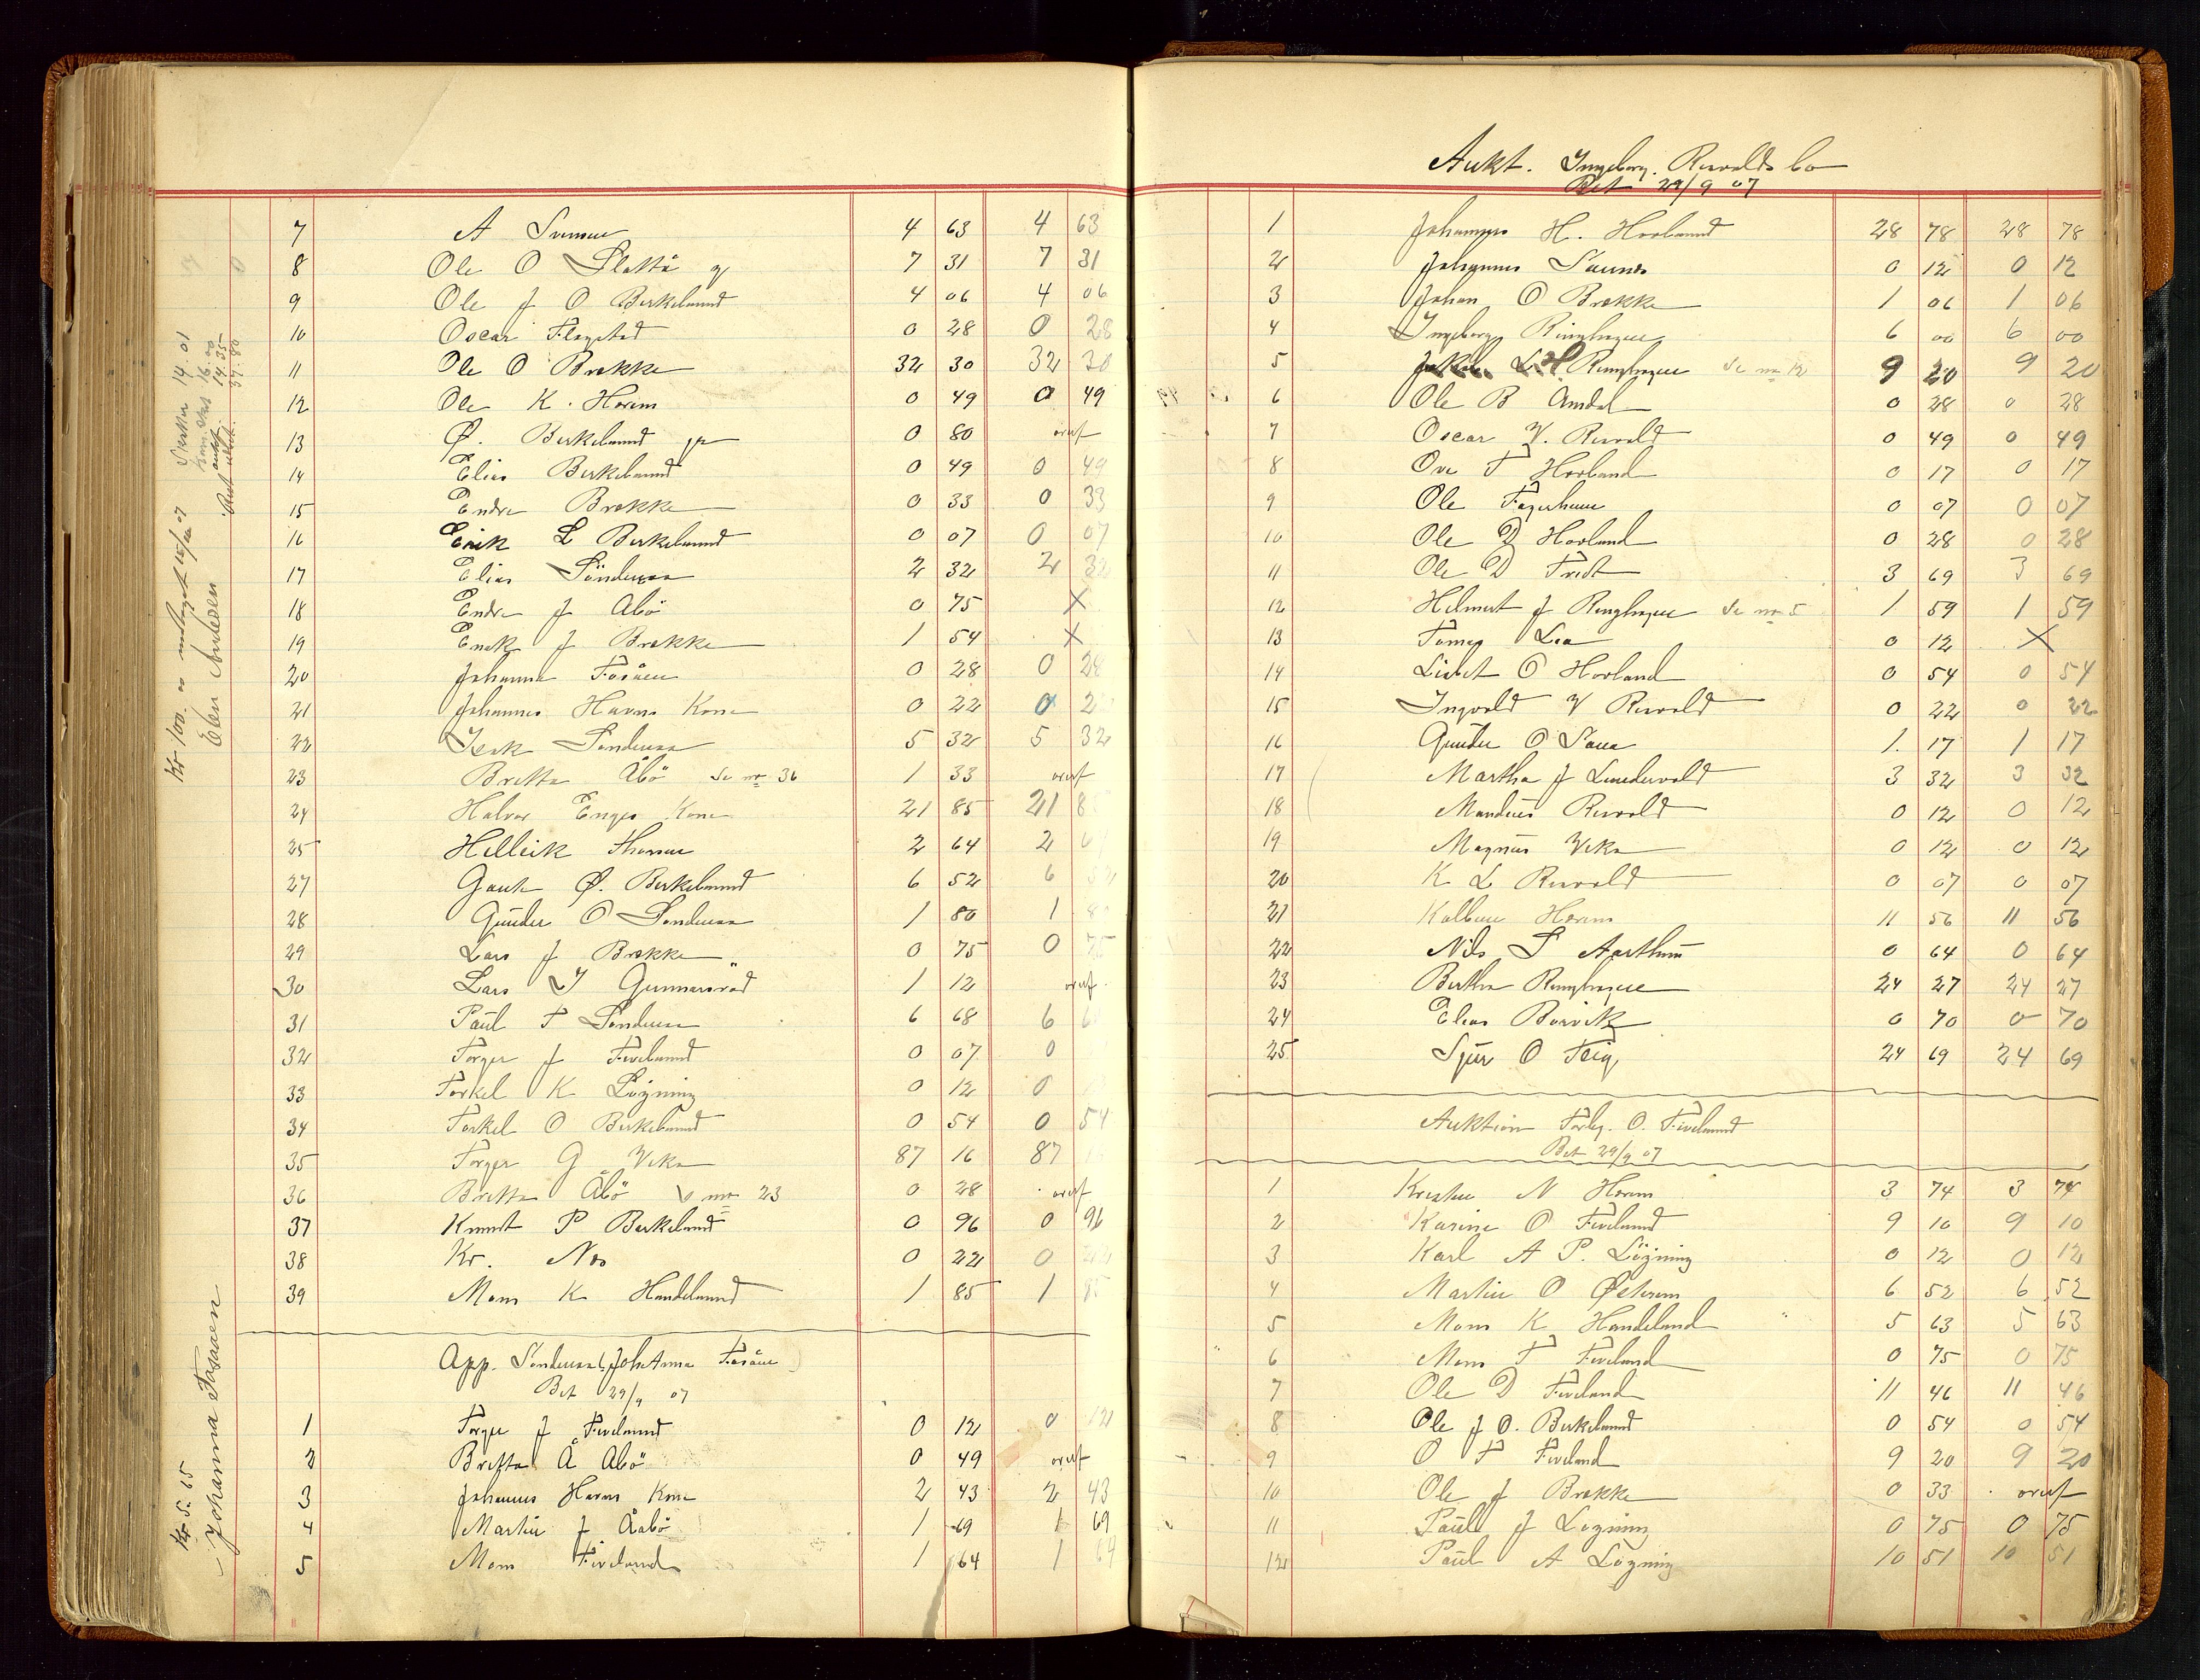 7 A Svensen 4 63 4 63
8 Ole O Slattå 7 31 7 31
9 Ole J O Birkelund 4 06 4 06
10 Oscar Flagstad 0 28 0 28
11 Ole O Brekke 32 30 32 30
12 Ole K. Horem 0 49 0 49
13 Ø. Birkelund 0 80 overf
14 Elias Birkelund 0 49 0 49
15 Endre Brekke 0 33 0 33
16 Erik L Birkelund 0 07 0 07
17 Elias Sönderaa 2 32 2 32
18 Endre J Åbö 0 75 X
19 J Brekke 1 54 X
20 Johanna Fosåen 0 28 0 28
21 Johannes Kone 0 22 0 2
22 Isak Sönderaa 5 32 5 32
23 Britta Åbö Se no 36 1 33 overf
24 Halvor Enges Kone 21 85 21 8
25 Helleik 2 64 2 64
27 Gaute Ø. Birkelund 6 52 6 52
28 Gunder O Sonderaa 1 80 1 80
29 Lars J Brekke 0 75 0 75
30 Lars Gunnarsvåd 1 12 overf.
31 Paul T Sonderaa 6 68 6 6
32 Torger J Fivelund 0 07 0
33 Torkel K Lögning 0 12 0
34 Torkel O Birkelund 0 54 0 54
35 Torger G Veka 87 16 87 16
36 Britta Åbö no 23 0 28 overf
37 Knut P Birkelund 0 96 0 96
38 Kr. Nes 0 22 0 22
39 Mons K Handeland 1 85 1 85
App. Sonderaa (Johanna Fosåen)
Bet 29/9 07
1 Torger J Fivelund 0 12 0 12
2 Britta Å Åbö 0 49 overf
3 Johannes Kone 2 43 2 43
4 Martin J Åabö 1 69 1 69
5 Mons Fiveland 1 64 1 64
Sverker 14.01
16.00
14.35
37.80
Kr 100.00 modtaget 15/10 07
Elen Andersen
Kr 5.65
Johanna Fosaaen
Aukt. Ingeborg Risvolds bo
Bet 29/9 07
1 Johannes H. Hovland 28 78 28 78
2 Johannes Saunes 0 12 0 12
3 Johan O Brekke 1 06 1 06
4 Ingeborg Ringhagen 6 00 6 00
5 Ringhagen Se no 12 9 20 9 20
6 Ole B Amdal 0 28 0 28
7 Oscar V. Risvold 0 49 0 49
8 Ove T Hovland 0 17 0 17
9 Ole Fagerheim 0 07 0 07
10 Ole D Hovland 0 28 0 28
11 Ole D Tredt 3 69 3 69
12 Helmert J Ringhagen Se no 5 1 59 1 59
13 Lea 0 12 X
14 Lisbet O Hovland 0 54 0 54
15 Ingvald V Risvold 0 22 0 22
16 Gunder O Saua 1. 17 1 17
17 Martha J Lundervold 3 32 3 32
18 Mandius Risvold 0 12 0 12
19 Magnus Veka 0 12 0 12
20 K L Risvold 0 07 0 07
21 Kolben Horem 11 56 11 56
22 Nils S Aarthun 0 64 0 64
23 Bertha Ringhagen 24 27 24 27
24 Elias Borvik 0 70 0 70
25 Sjur O Teig 24 69 24 69
Auktion Torb. O. Fivelund
Bet 29/9 07
1 Kristen N Horem 3 74 3 74
2 Karine O Fivelund 9 10 9 10
3 Karl A P. Lögning 0 12 0 12
4 Martin O Østrem 6 52 6 52
5 Mons K Handeland 5 63 5 63
6 Mons T Fiveland 0 75 0 75
7 Ole D Fiveland 11 46 11 46
8 Ole J O. Birkelund 0 54 0 54
9 O T Fiveland 9 20 9 20
10 Ole J Brekke 0 33 overf
11 Paul J Lögning 0 75 0 75
12 Paul A Lögning 10 51 10 51